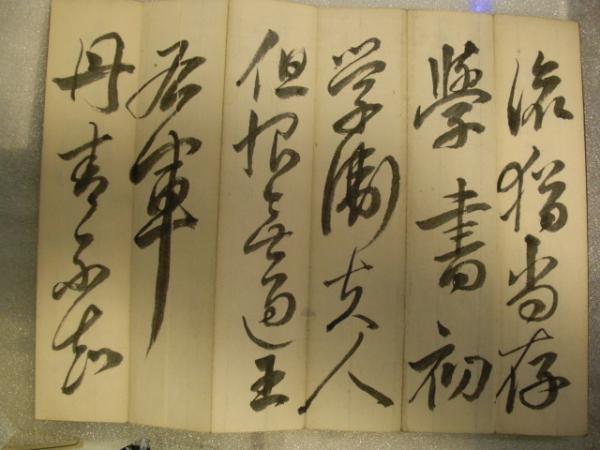 流猶尚存
學書初
学衛夫人
但恨無過王
右軍
丹青不知